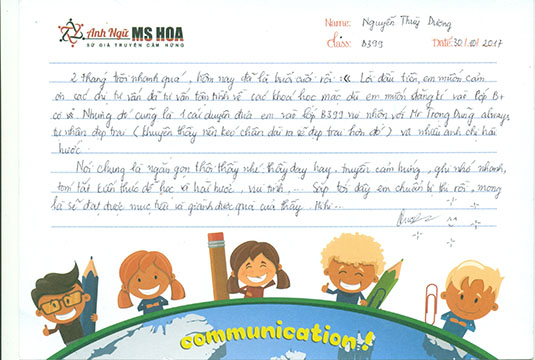 Anh Ngữ MS HOA
SỨ GIẢ TRUYỀN CẢM HỨNG
Name: Nguyễn Thuỳ Dương
Class: B399 Date: 30/10/2017
2 tháng trôi nhanh quá, hôm nay đã là buổi cuối rồi :(( Lời đầu tiên, em muốn cảm
ơn các chị tư vấn đã tư vấn tận tình về các khoá học mặc dù em muốn đăng kí vào lớp B+
cơ và Nhưng đó cũng là 1 cái duyên đưa em vào lớp B399 nơi nhộn với Mr Trọng Dũng always
tự nhận đẹp trai (khuyên thầy nên kéo chân dài ra sẽ đẹp trai hơn đó) và nhiều anh chị hài
hước.
Nói chung là ngắn gọn thôi thầy nhé: thầy dạy hay, truyền cảm hứng, ghi nhớ nhanh,
tóm tắt kiến thức dễ học và hài hước, vui tính, ... Sắp tới đây em chuẩn bị thi rồi, mong
là sẽ đạt được mục tiêu và giành được quà của thầy hihi...
communication!